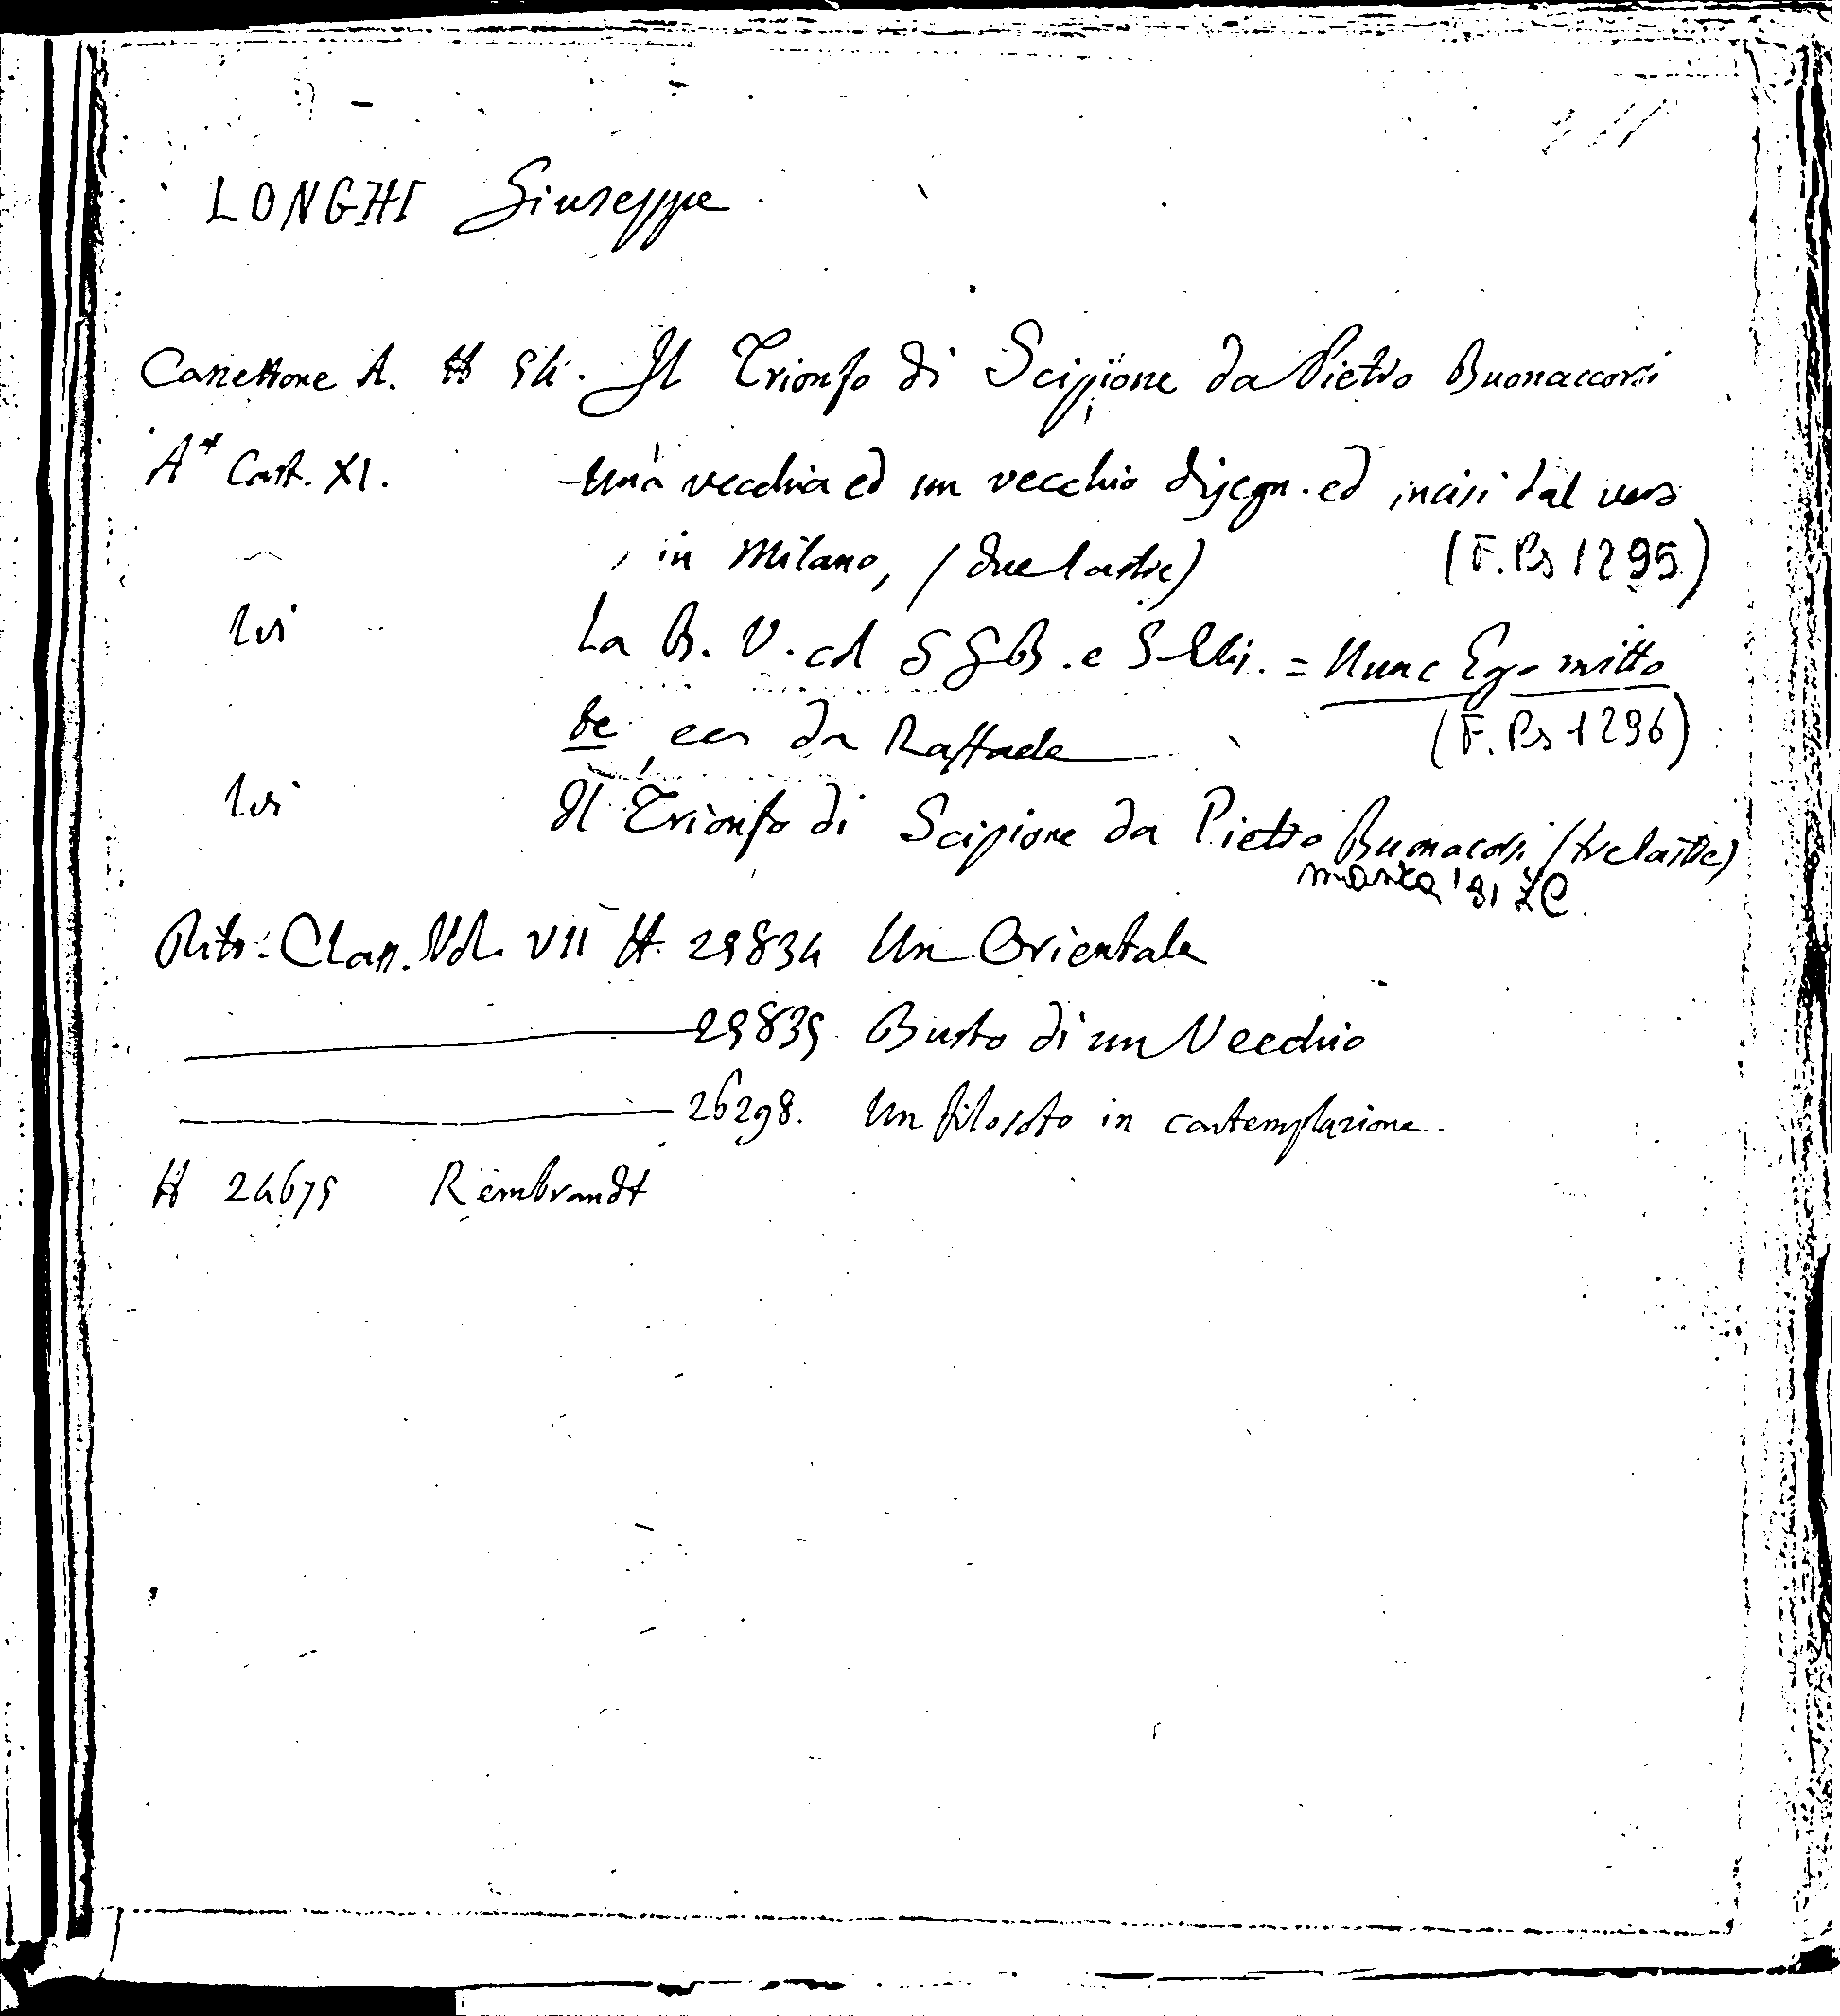 LONGHI Giuseppe
Cassettone A. H 54. Il Trionfo di Scipione da Pietro Buonaccorsi
A* Cart. XI. Una vecchia ed un vecchio disegn. ed incisi dal vero
in Milano, (due lastre) (F. Ps 1295)
Ivi La B. V. col S G B. e S Elis. = Nunc Ego mitto
te, ecc da Raffaele (F. Ps 1296)
Ivi Il Trionfo di Scipione da Pietro Buonacorsi (tre lastre)
manca
Ritr. Class. Vol. VII H. 29834 Un Orientale
29835 Busto di un Vecchio
26298. Un filosofo in contemplazione.
H 24675 Rembrandt